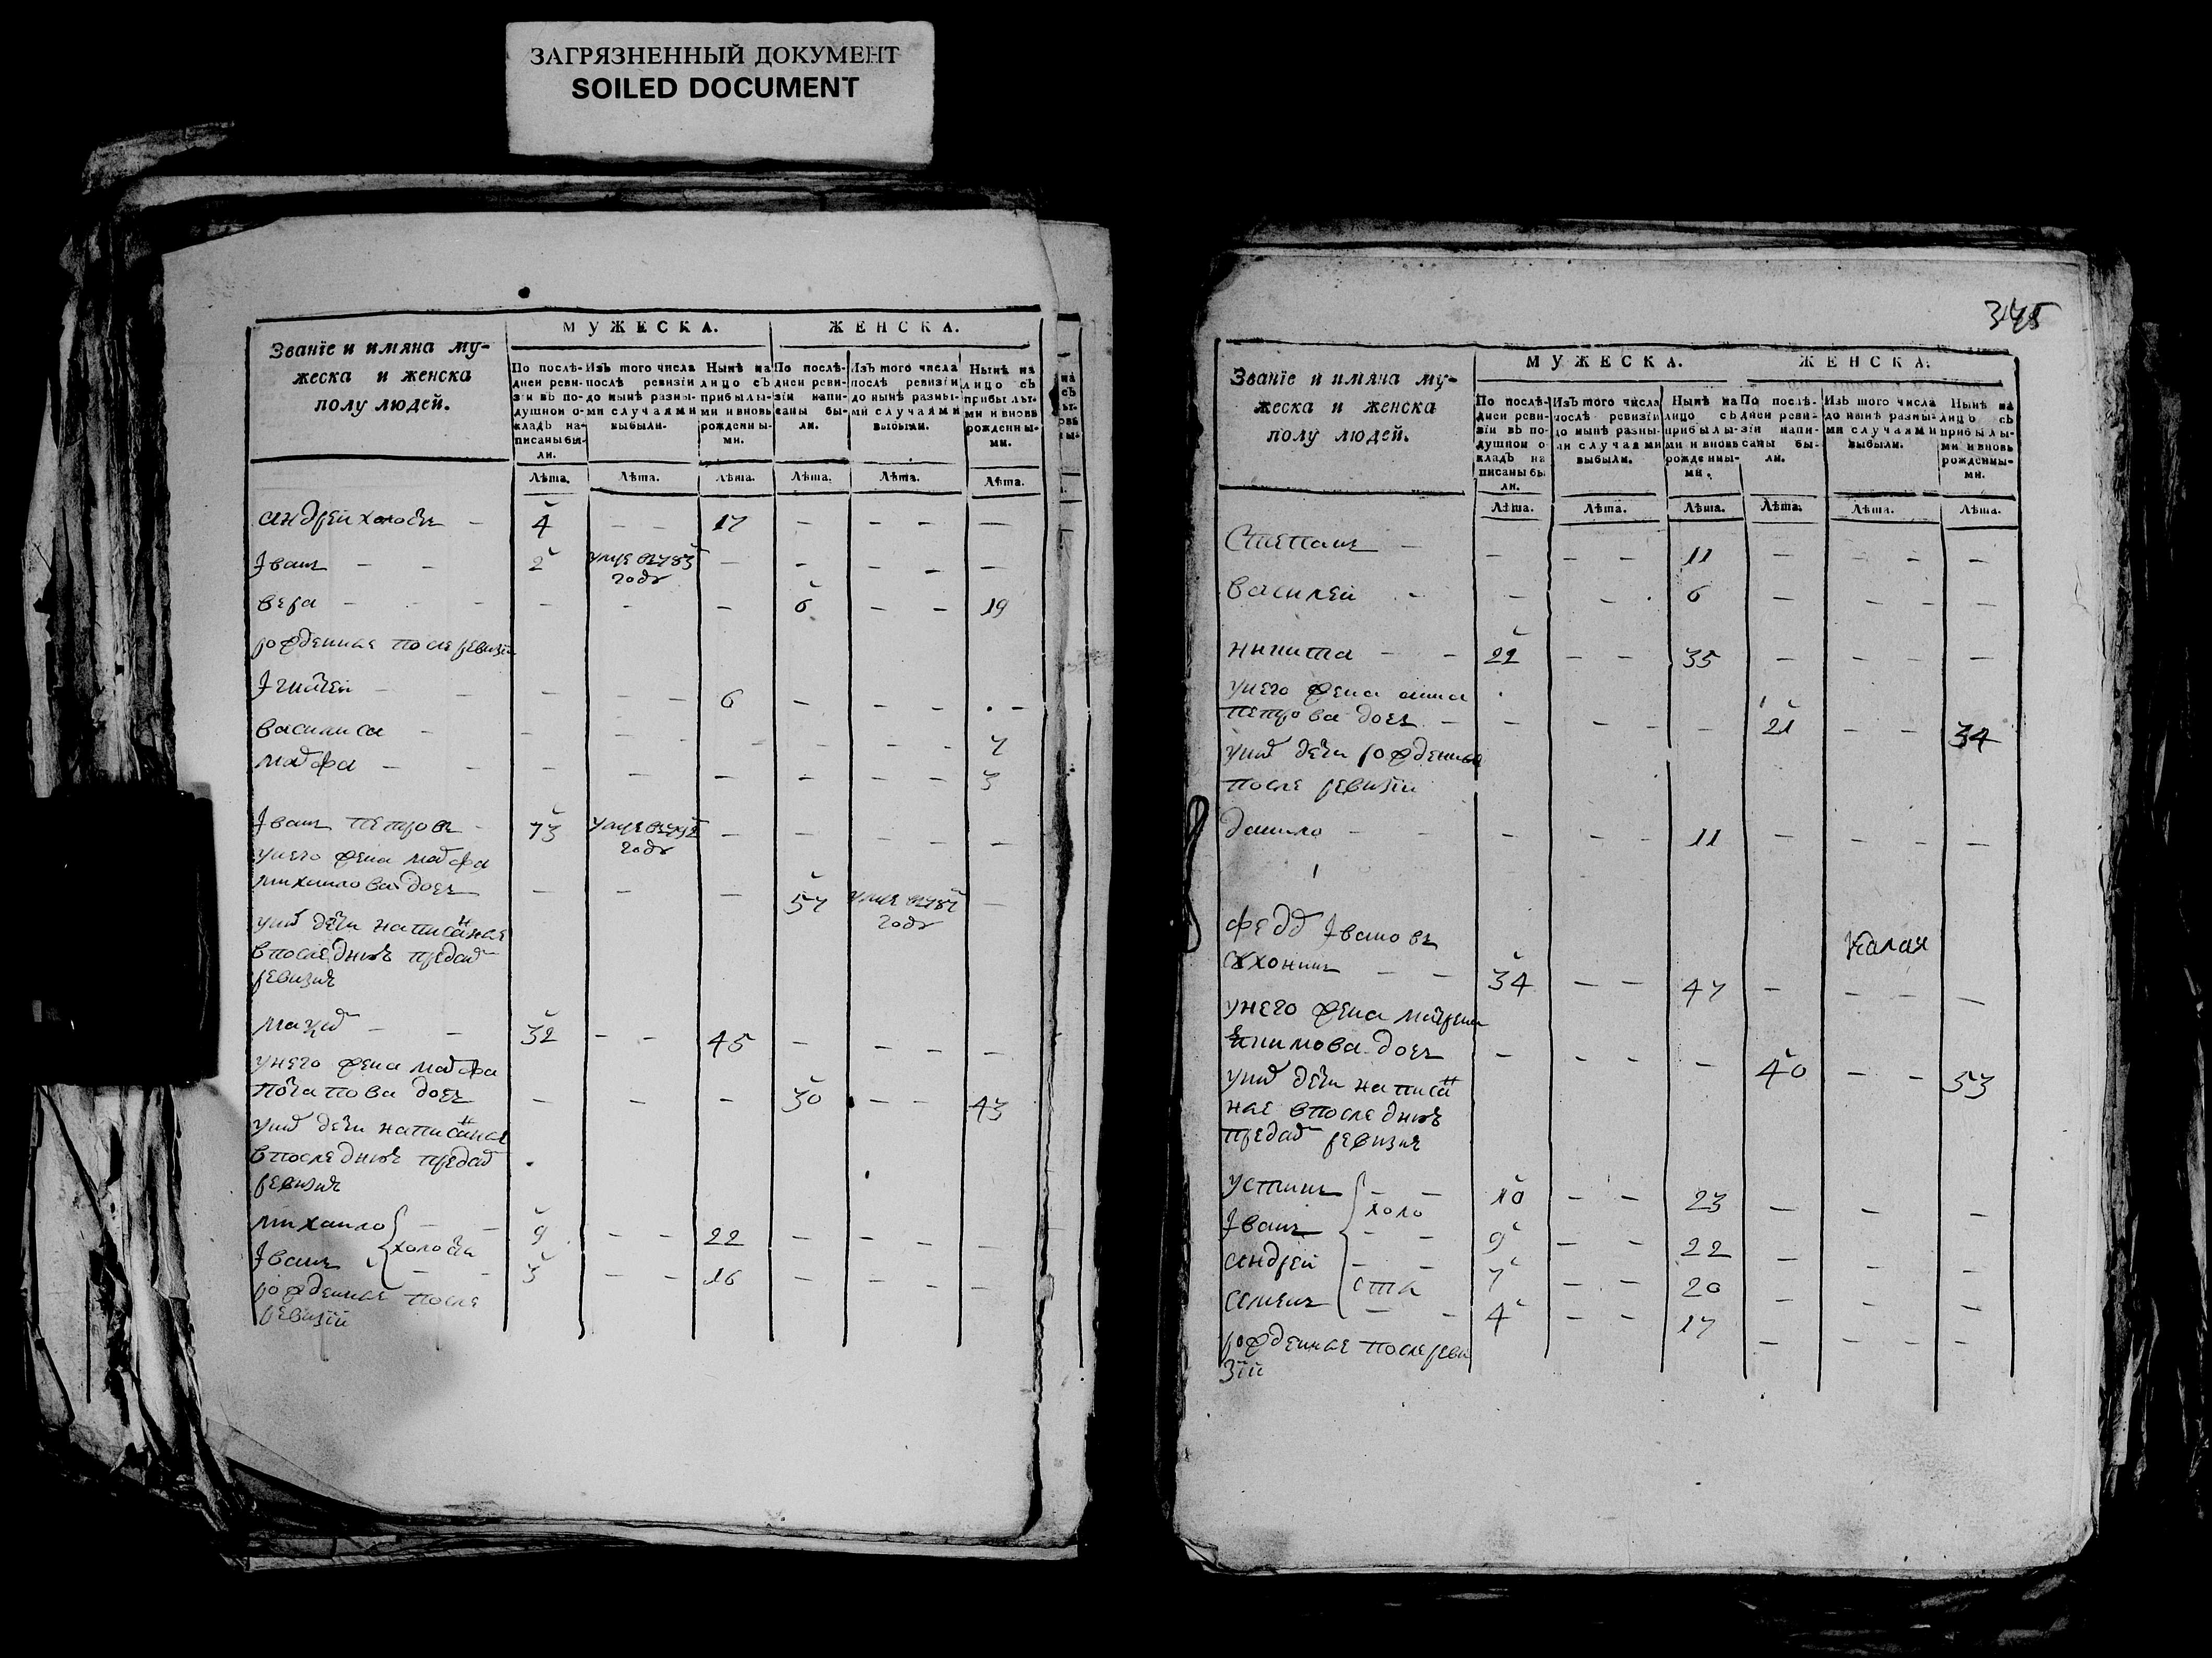 ЗАГРЯЗНЕННЫЙ ДОКУМЕНТ
SOILED DOCUMENT
Званїе и имяна му-
жеска и женска
полу людей.
МУЖЕСКА. ЖЕНСКА.
По послѣ-
дней реви-
зїи въ по-
душной о-
кладъ на-
писаны бы-
ли.
Изъ того числа
послѣ ревизїи
до нынѣ разны-
ми случаями
выбыли.
Нынѣ на
лицо съ
прибылы-
ми и вновь
рожденны-
ми.
По послѣ-
дней реви-
зїи напи-
саны бы-
ли.
Изъ того числа
послѣ ревизїи
до нынѣ разны-
ми случаями
выбыли.
Нынѣ на
лицо съ
прибылы-
ми и вновь
рожденны-
ми.
Лѣта. Лѣта. Лѣта. Лѣта. Лѣта. Лѣта.
андрей холостъ - 4 - - 17 - - - -
Іванъ - - 2 умре в 1783 - - - - -
году
вера - - - - - - 6 - - 19
рожденные после ревизїи
Игнатей - - - - - 6 - - - -
василиса - - - - - - - - 7
марфа - - - - - - - - - 3
Іванъ петровъ - 73 умре в 1792 - - - - -
году
унего жена марфа
михаилова дочь - - - 57 умре в 1787 -
году
уних дети написаные
впоследнюю пред сим
ревизию
макар - - 32 - - 45 - - - -
унего жена марфа
потапова дочь - - - 30 - - 43
уних дети написаные
впоследнюю пред сим
ревизию
михаило - - 9 - - 22 - - - -
холосты
Іванъ - - 3 - - 16 - - - -
рожденные после
ревизїи
345
Званїе и имяна му-
жеска и женска
полу людей.
МУЖЕСКА. ЖЕНСКА.
По послѣ-
дней реви-
зїи въ по-
душной о-
кладъ на
писаны бы
ли.
Изъ того числа
послѣ ревизїи
до нынѣ разны-
ми случаями
выбыли.
Нынѣ на
лицо съ
прибылы-
ми и вновь
рожденны-
ми.
По послѣ-
дней реви-
зїи напи-
саны бы-
ли.
Изъ того числа
до нынѣ разны-
ми случаями
выбыли.
Нынѣ на
лицо съ
прибылы-
ми и вновь
рожденны-
ми.
Лѣта. Лѣта. Лѣта. Лѣта. Лѣта. Лѣта.
Степанъ - - - - 11 - - - -
василей - - - - 6 - - - -
никита - - 22 - - 35 - - - -
унего жена анна
петрова дочь - - - - - 21 - - 34
уних дети рожденные
после ревизїи
данило - - - - - 11 - - - -
федор Івановъ
- - 34 - - 47 - - - -
унего жена матрена
дочь - - - - 40 - - 53
уних дети написан
ные впоследнюю
пред сим ревизию
устинъ - - 10 - - 23 - - -
холо
Іванъ - - 9 - - 22 - - -
андрей - - 7 - - 20 - - -
сты
семенъ - - 4 - - 17 - - -
рожденные после реви
зїи